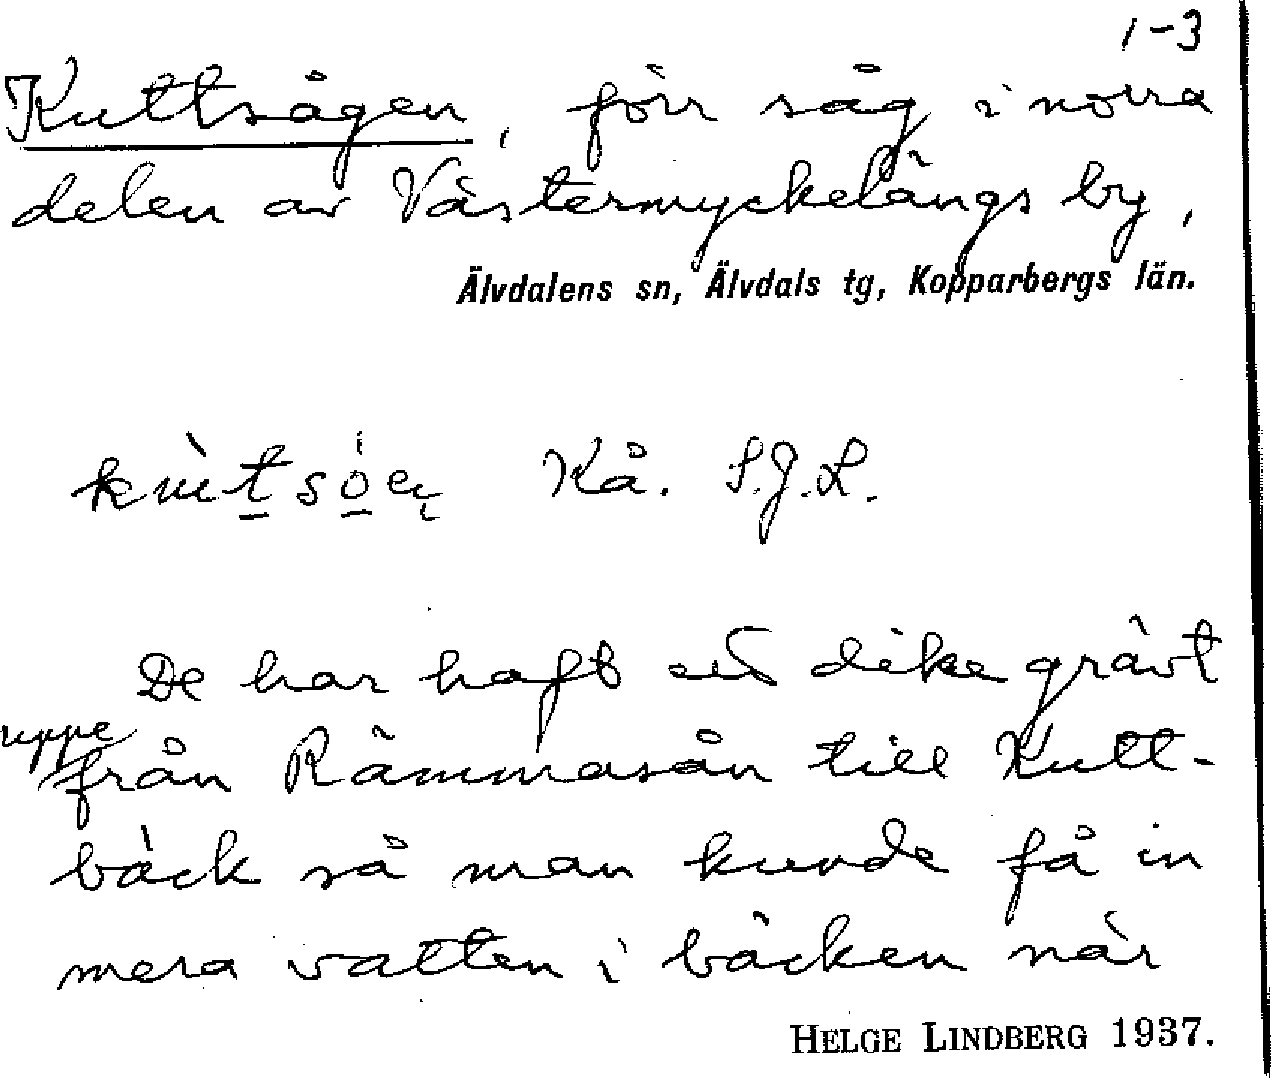 1-3
Kuttsågen, förr såg i norra
delen av Västermyckelängs by,
Älvdalens sn, Älvdals tg, Kopparbergs län.
Kå. S.J.L.
De har haft ett dike grävt
uppe
från Rämmasån till Kutt-
bäck så man kunde få in
mera vatten i bäcken när
HELGE LINDBERG 1937.